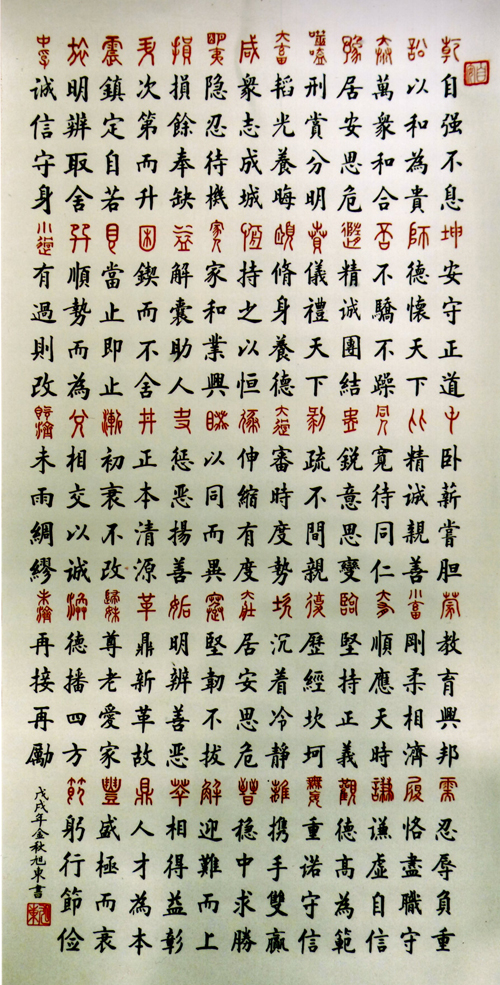 乾自强不息坤安守正道屯卧薪嘗胆蒙教育興邦需忍辱負重
訟以和為貴師德懷天下比精誠親善小畜剛柔相濟履恪盡職守
泰萬衆和合否不驕不躁同人寬待同仁大有順應天時謙謙虛自信
豫居安思危隨精誠團結蠱鋭意思變臨堅持正義觀德高為範
噬嗑刑賞分明賁儀禮天下剥疏不間親復歷經坎坷無妄重諾守信
大畜韜光養晦頤脩身養德大過審時度勢坎沉着冷靜離携手雙贏
咸衆志成城恒持之以恒遯伸縮有度大壯居安思危晉穩中求勝
明夷隐忍待機家人家和業興睽以同而異蹇堅韌不拔解迎難而上
損損餘奉缺益解囊助人夬惩恶揚善姤明辨善恶萃相得益彰
升次第而升困鍥而不舍井正本清源革鼎新革故鼎人才為本
震鎮定自若艮當止即止漸初衷不改歸妹尊老愛家豐盛極而衰
旅明辨取舍巽順勢而為兌相交以誠渙德播四方節躬行節俭
中孚誠信守身小過有過則改既濟未雨綢繆未濟再接再勵
戊戌年金秋旭東書